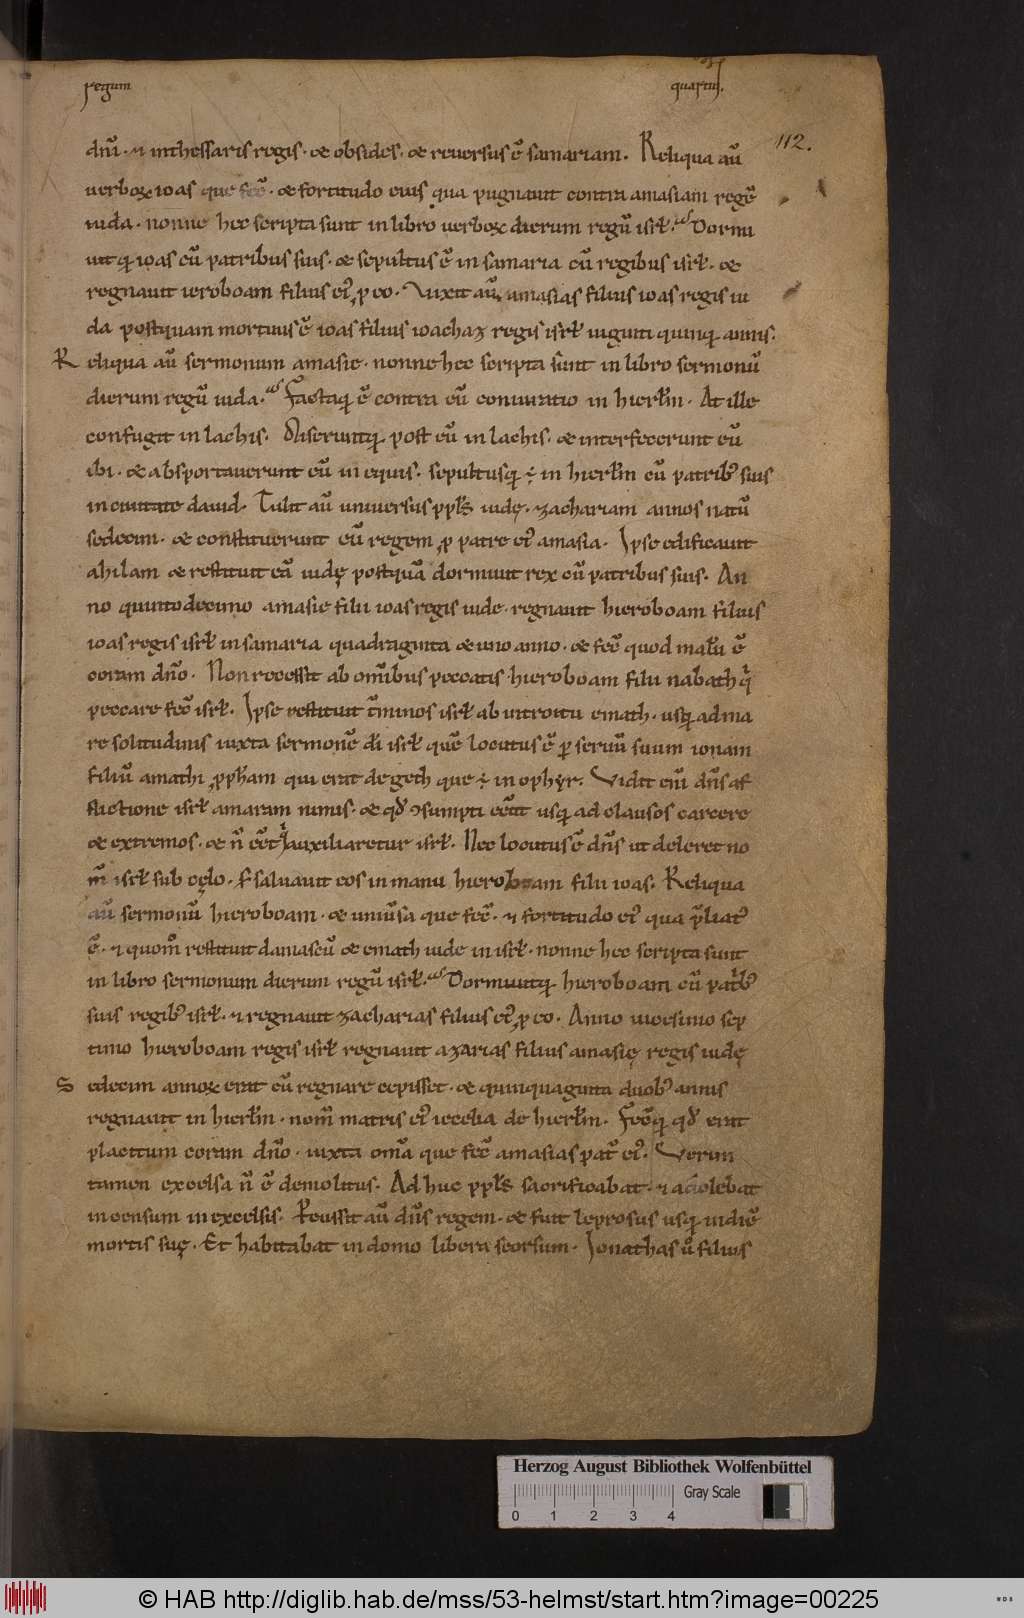 regum
quartus.
112.
dnī · & inthessaris regis · & obsides · & reuersus ē samariam · Reliqua aū
uerboꝝ ioas que fec̄ · & fortitudo eius qua pugnauit contra amasiam regē
iuda · nonne hec scripta sunt in libro uerboꝝ dierum regū isrł · Dormi
uitq; ioas cū patribus suis · & sepultus ē in samaria cū regibus isrł · &
regnauit ieroboam filius ei᾿ ꝓ eo · Vixit aū amasias filius ioas regis iu
da postquam mortuus ē ioas filius ioachaz regis isrł uiginti quinq; annis.
Reliqua aū sermonum amasie · nonne hec scripta sunt in libro sermonū
dierum regū iuda · Factaq; ē contra eū coniuratio in hierłm · At ille
confugit in lachis · Miseruntq; post eū in lachis · & interfecerunt eū
ibi · & absportauerunt eū in equis · sepultusq; ÷ in hierłm cū patrib᾿ suis
in ciuitate dauid. Tulit aū uniuersus ppłs iudę · zachariam annos natū
sedecim · & constituerunt eū regem ꝓ patre ei᾿ amasia · Ipse edificauit
ahilam & restituit eā iudę postquā dormiuit rex cū patribus suis · An
no quintodecimo amasie filii ioas regis iude · regnauit hieroboam filius
ioas regis isrł in samaria quadraginta & uno anno · & fec̄ quod malū ē
coram dn̄o · Non recessit ab om̄ibus peccatis hieroboam filii nabath q̇
peccare fec̄ isrł · Ipse restituit t̄minos isrł ab introitu emath · usq; ad ma
re solitudinis iuxta sermonē dī isrł quē locutus ē ꝑ seruū suum ionam
filiū amathi ꝓpħam qui erat de geth que ÷ in ophyr. Vidit enī dn̄s af
flictione isrł amaram nimis · & qd̄ ꝯsumpti eēnt usq; ad clausos carcere
& extremos · & ñ eēt q̇ auxiliaretur isrł · Nec locutus ē dn̄s ut deleret no
m̄ isrł sub cęlo · S; saluauit eos in manu hieroboam filii ioas. Reliqua
aū sermonū hieroboam · & uniūsa que fec̄ · & fortitudo ei᾿ qua p̄liat᾿
ē · & quom̊ restituit damascū & emath iude in isrł · nonne hec scripta sunt
in libro sermonum dierum regū isrł · Dormiuitq; hieroboam cū patrib᾿
suis regib᾿ isrł · & regnauit zacharias filius ei᾿ ꝓ eo · Anno uicesimo sep
timo hieroboam regis isrł regnauit azarias filius amasię regis iudę
Sedecim annoꝝ erat cū regnare cepisset · & quinquaginta duob᾿ annis
regnauit in hierłm · nom̄ matris ei᾿ iecelia de hierłm · Fecitq; qd̄ erat
placitum coram dn̄o · iuxta om̄a que fec̄ amasias pat̄ ei᾿. Verun
tamen excelsa ñ ē demolitus. Ad huc ppłs sacrificabat · & adolebat
incensum in excelsis · Percussit aū dn̄s regem · & fuit leprosus usq; in diē
mortis suę · Et habitabat in domo libera seorsum · Ionathas ů filius
Herzog August Bibliothek Wolfenbüttel
Gray Scale
0 1 2 3 4
© HAB http://diglib.hab.de/mss/53-helmst/start.htm?image=00225